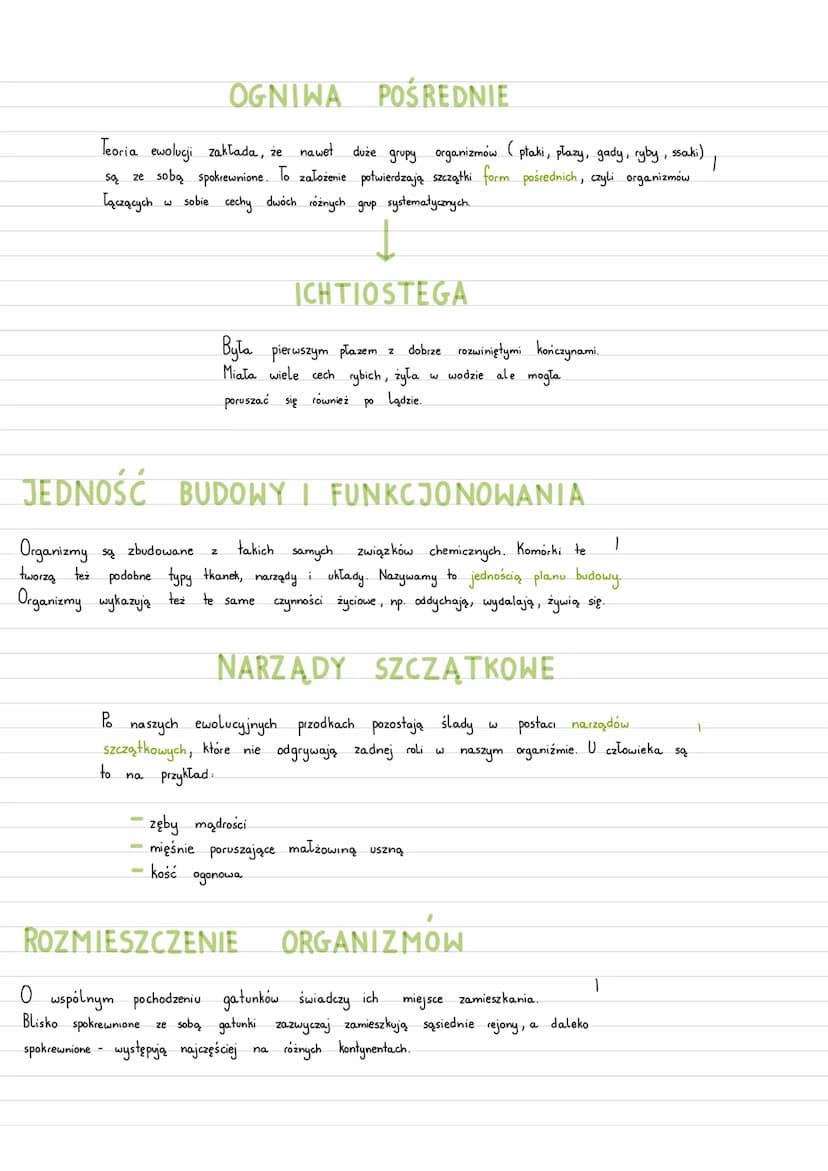 OGNIWA POŚREDNIE
Teoria ewolucji zakłada, że nawet duże grupy organizmów (ptaki, płazy, gady, ryby, ssaki)
są ze sobą spokrewnione. To założenie potwierdzają szczątki form pośrednich, czyli organizmów
łączących w sobie cechy dwóch różnych grup systematycznych.
ICHTIOSTEGA
Była pierwszym płazem z dobrze rozwiniętymi kończynami.
Miała wiele cech rybich, żyła w wodzie ale mogła
poruszać się również po lądzie.
JEDNOŚĆ BUDOWY I FUNKCJONOWANIA
Organizmy są zbudowane z takich samych związków chemicznych. Komórki te
tworzą też podobne typy tkanek, narządy i układy. Nazywamy to jednością planu budowy.
Organizmy wykazują też te same czynności życiowe, np. oddychają, wydalają, żywią się.
NARZĄDY SZCZĄTKOWE
Po naszych ewolucyjnych przodkach pozostają ślady w postaci narządów
szczątkowych, które nie odgrywają żadnej roli w naszym organiźmie. U człowieka są
to na przykład:
- zęby mądrości
- mięśnie poruszające małżowiną uszną
- kość ogonowa
ROZMIESZCZENIE ORGANIZMÓW
O wspólnym pochodzeniu gatunków świadczy ich miejsce zamieszkania.
Blisko spokrewnione ze sobą gatunki zazwyczaj zamieszkują sąsiednie rejony, a daleko
spokrewnione - występują najczęściej na różnych kontynentach.